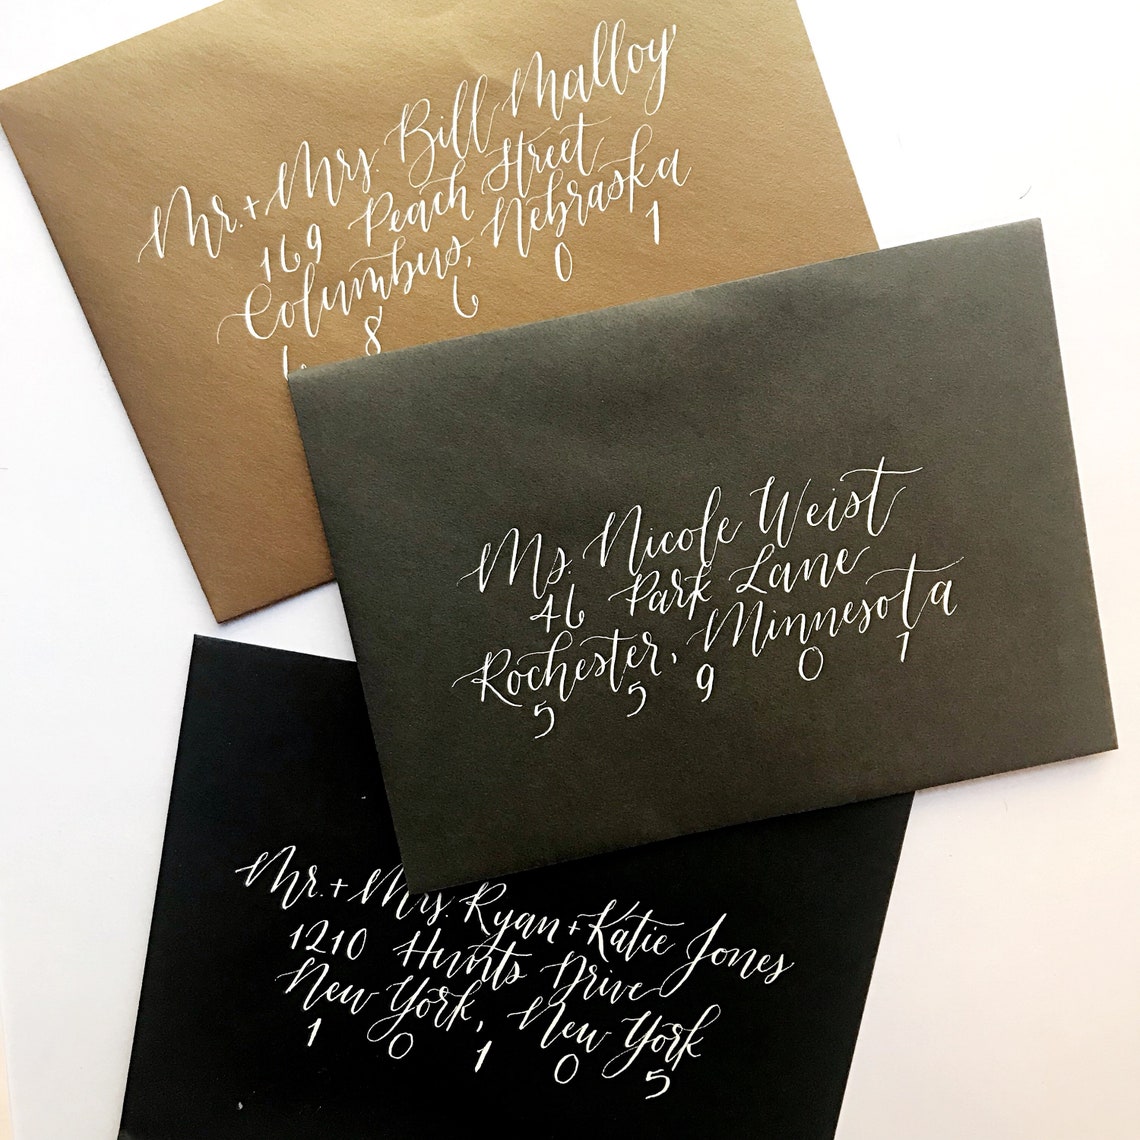 Mr. + Mrs. Bill Malloy
169 Peach Street
Columbus, Nebraska
6 8 6 0 1
Ms. Nicole Weist
46 Park Lane
Rochester, Minnesota
5 5 9 0 1
Mr. + Mrs. Ryan + Katie Jones
1210 Hunts Drive
New York, New York
1 0 1 0 5